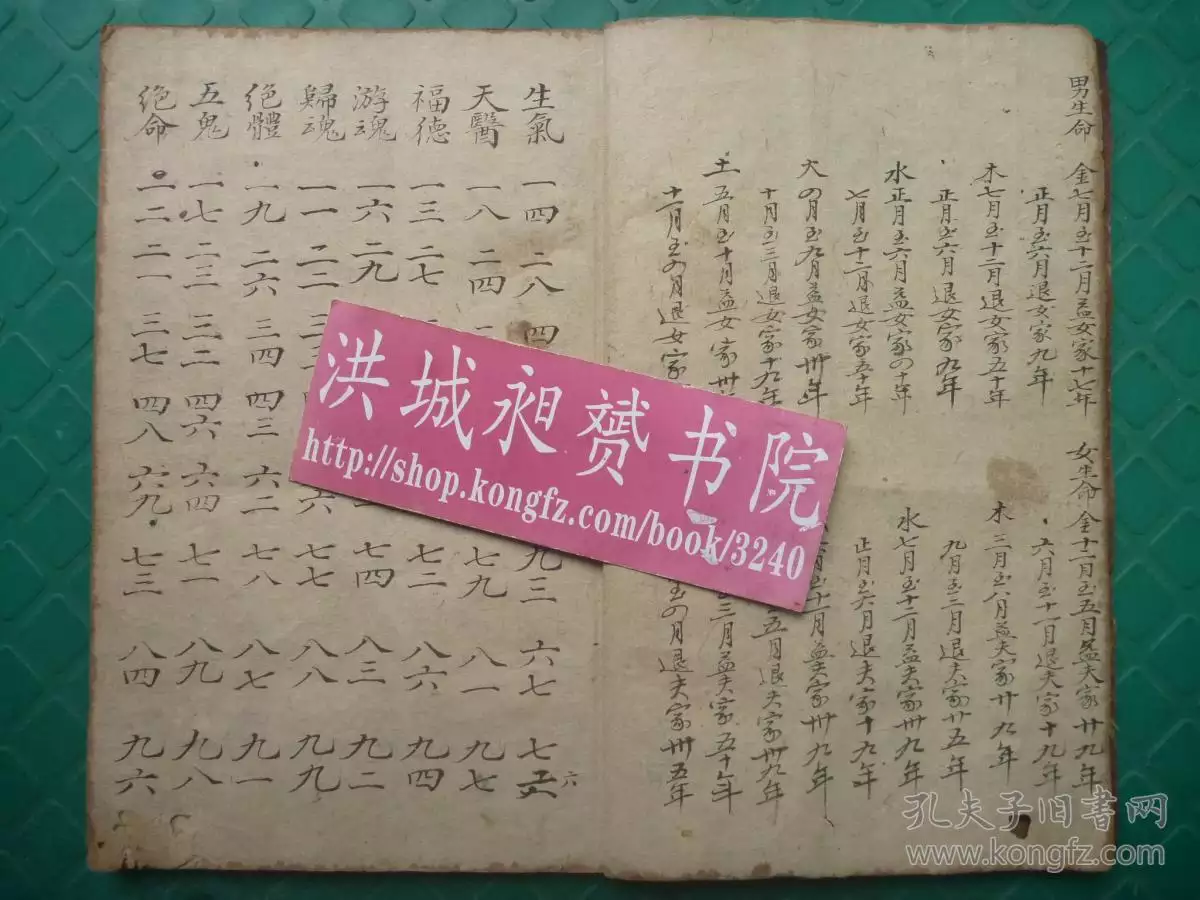 男生命 金七月至十二月益女家十七年 女生命 金十二月至五月益夫家卅九年
正月至六月退女家九年 六月至十一月退夫家十九年
木七月至十二月退女家五十年 木三月至八月益夫家卅九年
正月至六月退女家九年 九月至二月退夫家廿五年
水正月至六月益女家四十年 水七月至十二月益夫家卅九年
七月至十二月退女家五十年 正月至六月退夫家十九年
火四月至九月益女家卅年 月至十二月益夫家卅九年
十月至三月退女家十九年 五月退夫家卅九年
土五月至十月益女家卅 三月益夫家五十年
十一月至四月退女家 至四月退夫家卅五年
生氣 一四 二八 四 九三 六七 七六 六
天醫 一八 二四 七九 八一 九七
福德 一三 二七 七二 八六 九四
游魂 一六 二九 七四 八三 九二
歸魂 一一 二二 三 六 七七 八八 九九
絕體 一九 二六 三四 四三 六二 七八 八七 九一
五鬼 一七 二三 三二 四六 六四 七一 八九 九八
絕命 一二 二一 三七 四八 六九 七三 八四 九六
洪城昶赟书院
http://shop.kongfz.com/book/3240
孔夫子旧书网
www.kongfz.com